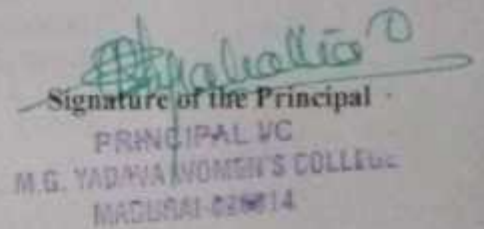 Signature of the Principal
PRINCIPAL I/C
M.G. YADAVA WOMEN'S COLLEGE
MADURAI-625014